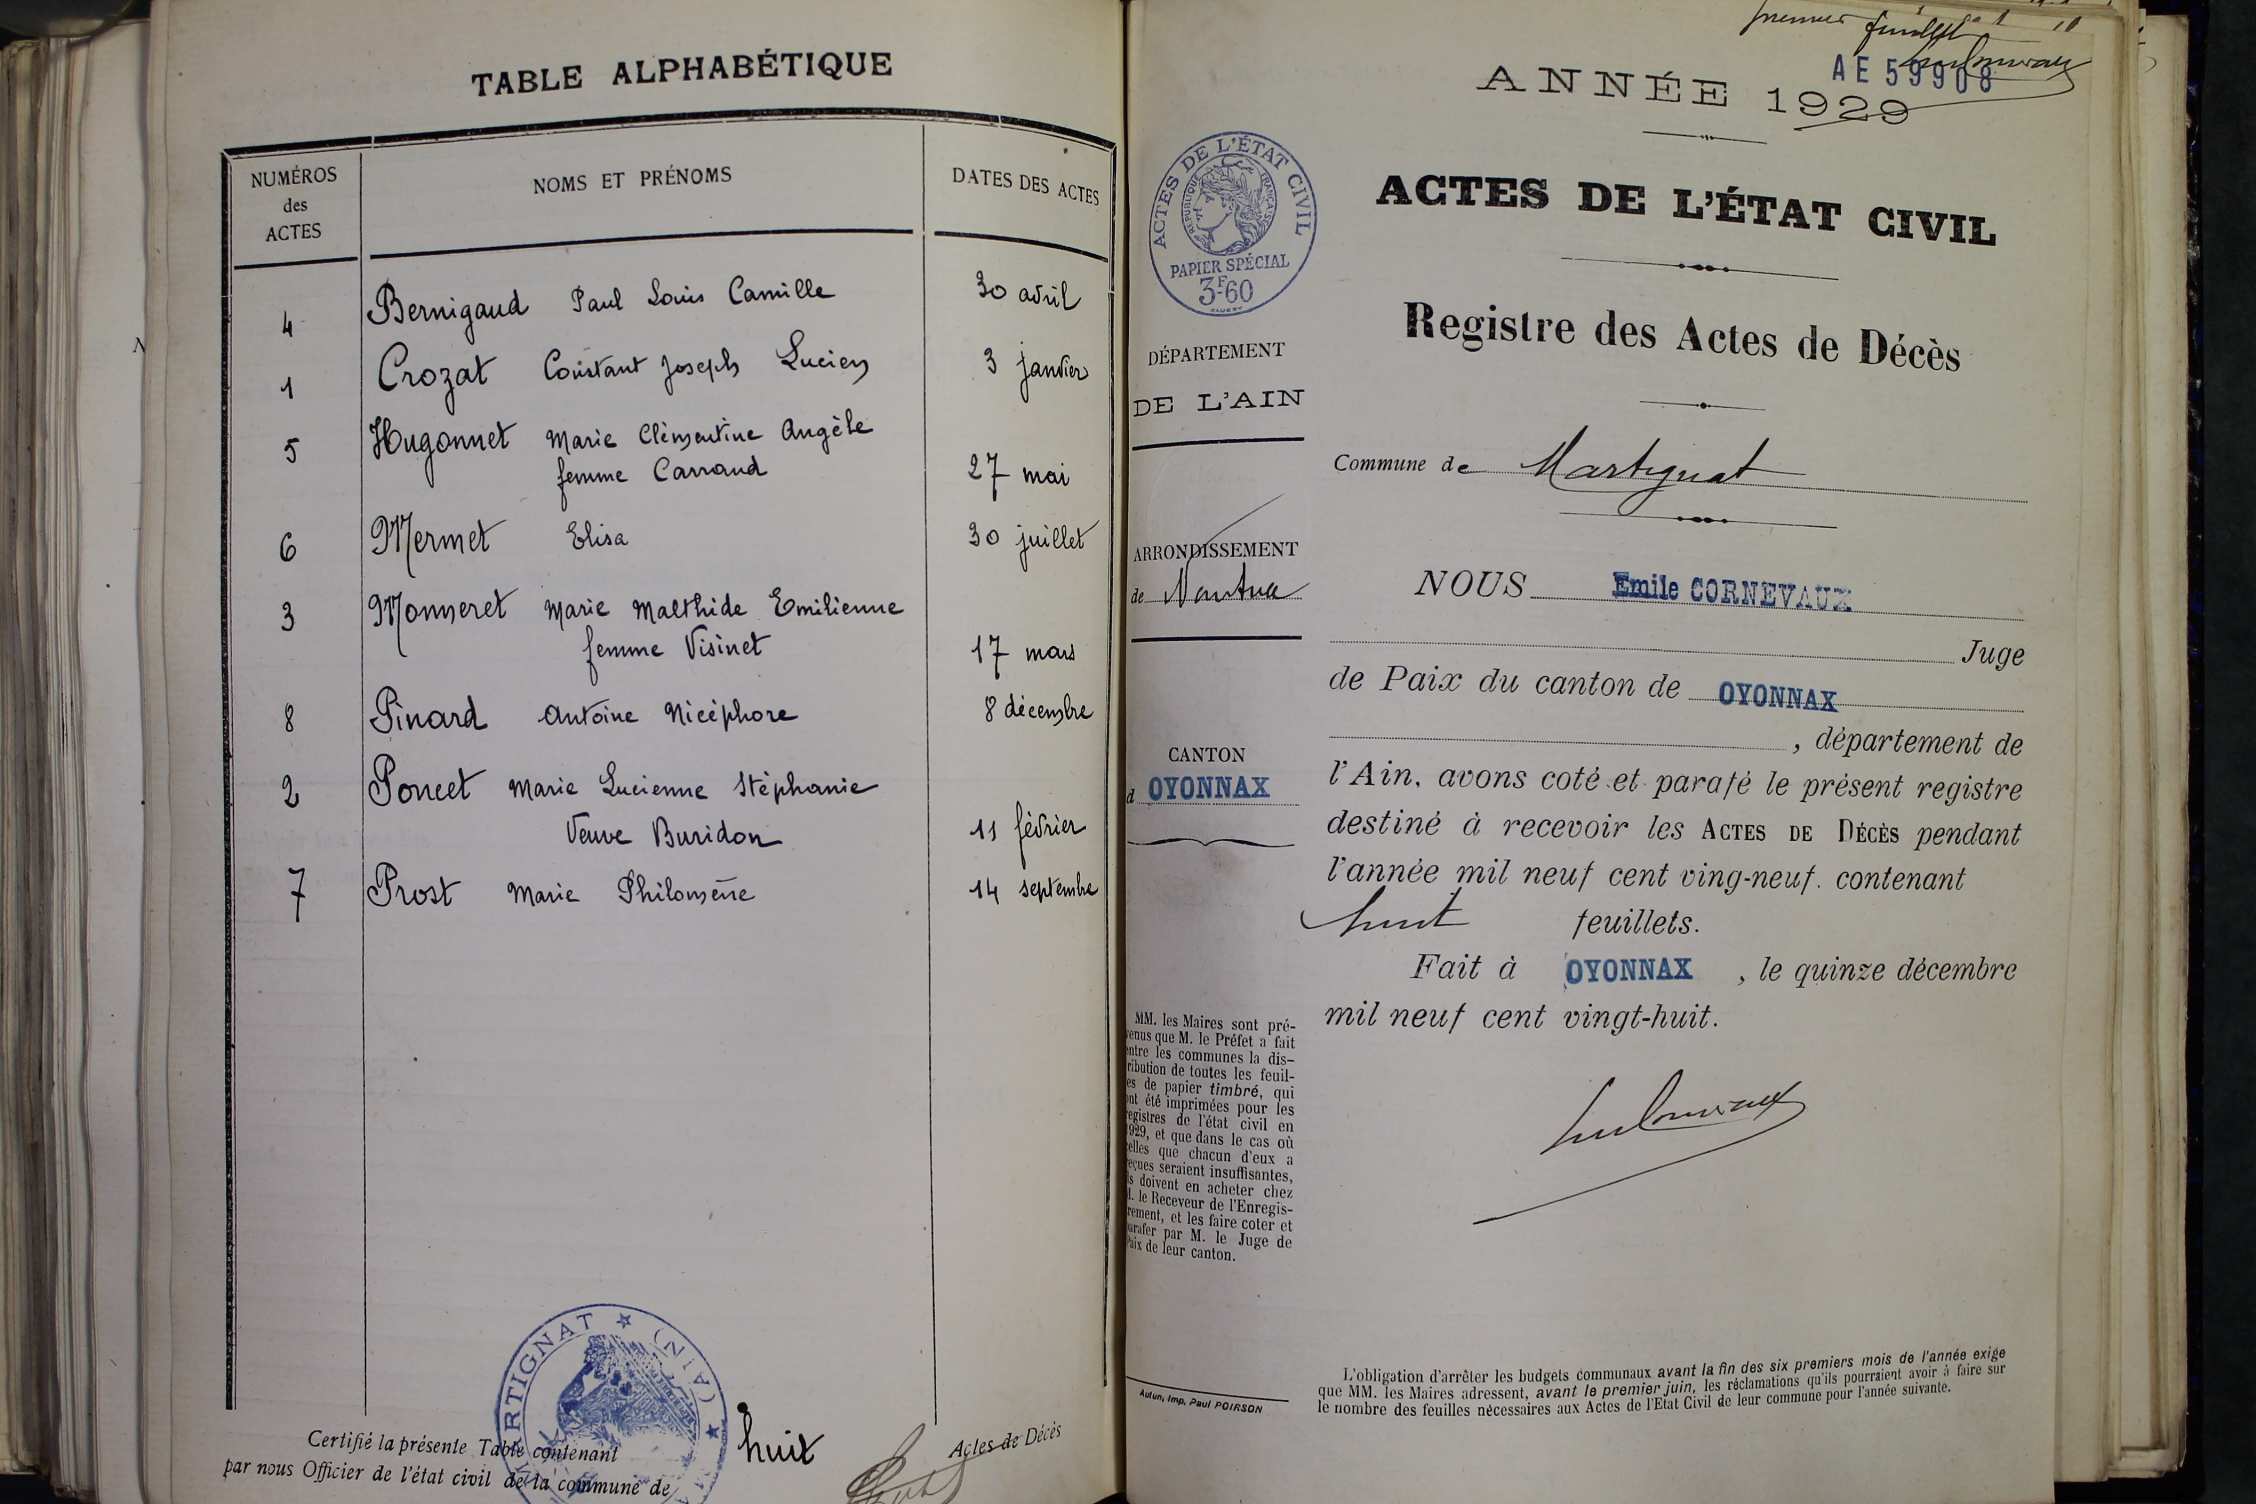 TABLE ALPHABÉTIQUE
NUMÉROS des ACTES
NOMS ET PRÉNOMS
DATES DES ACTES
4 Bernigaud Paul Louis Camille 30 avril
1 Crozat Constant Joseph Lucien 3 janvier
5 Hugonnet Marie Clémentine Angèle
femme Carraud 27 mai
6 Mermet Elisa 30 juillet
3 Monneret Marie Malthide Emilienne
femme Visinet 17 mars
8 Pinard Antoine Nicéphore 8 décembre
2 Poncet Marie Lucienne Stéphanie
Veuve Buridon 11 février
7 Prost Marie Philomène 14 septembre
MARTIGNAT ★ (AIN) ★
Certifié la présente Table contenant huit Actes de Décès
par nous Officier de l'état civil de la commune de
premier feuillet
AE 59908
ANNÉE 1929
ACTES DE L'ÉTAT CIVIL
RÉPUBLIQUE FRANÇAISE
PAPIER SPÉCIAL
3F.60
DÉPARTEMENT
DE L'AIN
ARRONDISSEMENT
de Nantua
CANTON
d OYONNAX
MM. les Maires sont pré-
venus que M. le Préfet a fait
entre les communes la dis-
tribution de toutes les feuil-
es de papier timbré, qui
ont été imprimées pour les
registres de l'état civil en
1929, et que dans le cas où
celles que chacun d'eux a
reçues seraient insuffisantes,
ils doivent en acheter chez
M. le Receveur de l'Enregis-
rement, et les faire coter et
parafer par M. le Juge de
Paix de leur canton.
Autun, Imp. Paul POIRSON
ACTES DE L'ÉTAT CIVIL
Registre des Actes de Décès
Commune de Martignat
NOUS Emile CORNEVAUX
Juge
de Paix du canton de OYONNAX
, département de
l'Ain, avons coté et parafé le présent registre
destiné à recevoir les ACTES DE DÉCÈS pendant
l'année mil neuf cent ving-neuf. contenant
huit feuillets.
Fait à OYONNAX , le quinze décembre
mil neuf cent vingt-huit.
L'obligation d'arrêter les budgets communaux avant la fin des six premiers mois de l'année exige
que MM. les Maires adressent, avant le premier juin, les réclamations qu'ils pourraient avoir à faire sur
le nombre des feuilles nécessaires aux Actes de l'Etat Civil de leur commune pour l'année suivante.